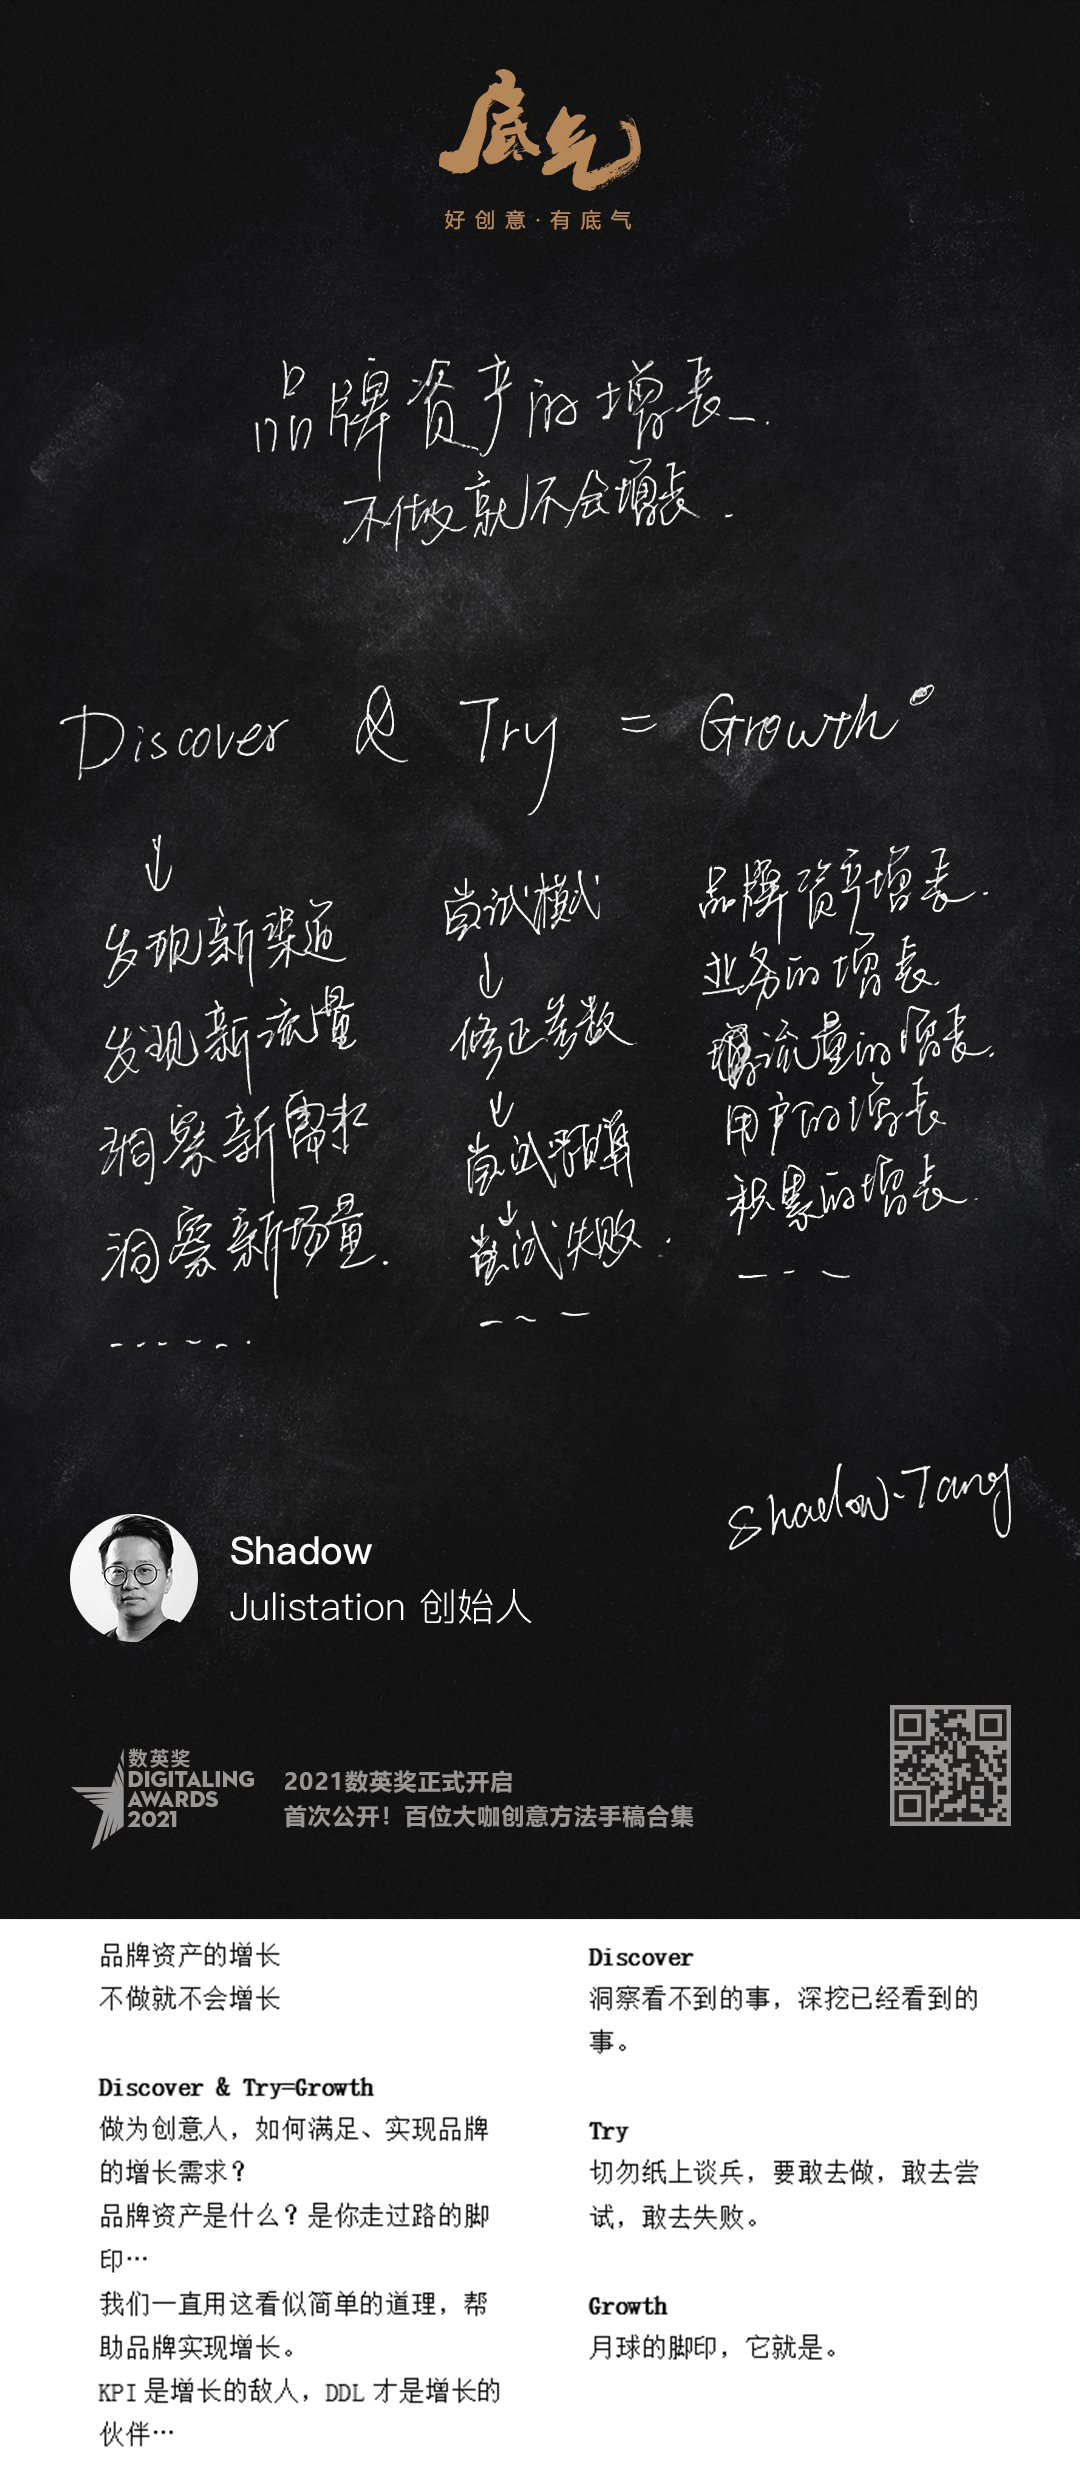 底气
好创意·有底气
品牌资产的增长.
不做就不会增长.
Discover & Try = Growth
↓
发现新渠道
发现新流量
洞察新需求
洞察新场量.
------
尝试模式
↓
修正参数
↓
尝试预算
↓
尝试失败.
---
品牌资产增长.
业务的增长.
流量的增长.
用户的增长
积累的增长.
---
Shadow-Tang
Shadow
Julistation 创始人
数英奖
DIGITALING
AWARDS
2021
2021数英奖正式开启
首次公开！百位大咖创意方法手稿合集
品牌资产的增长
不做就不会增长
Discover & Try=Growth
做为创意人，如何满足、实现品牌
的增长需求？
品牌资产是什么？是你走过路的脚
印…
我们一直用这看似简单的道理，帮
助品牌实现增长。
KPI 是增长的敌人，DDL 才是增长的
伙伴…
Discover
洞察看不到的事，深挖已经看到的
事。
Try
切勿纸上谈兵，要敢去做，敢去尝
试，敢去失败。
Growth
月球的脚印，它就是。